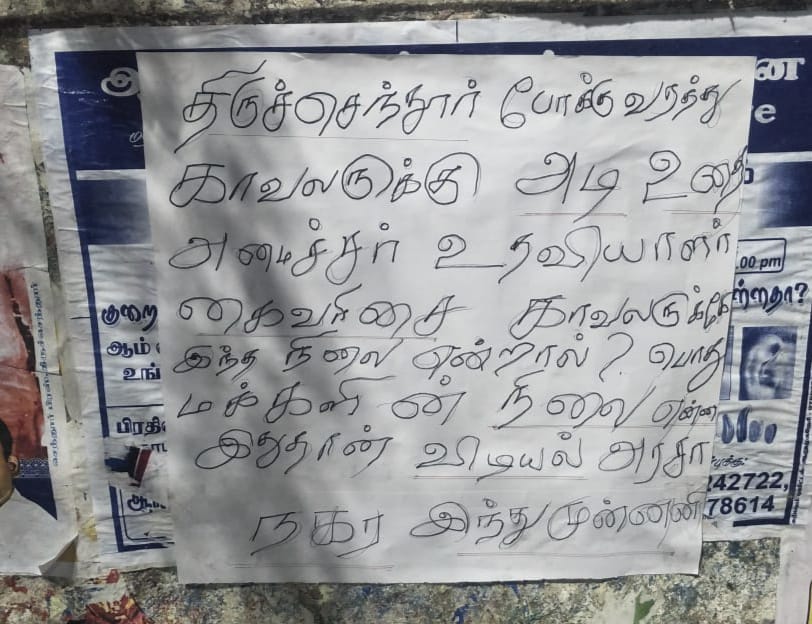 திருச்செந்தூர் போக்குவரத்து
காவலருக்கு அடி உதை
அமைச்சர் உறவியாளர்
கைவரிசை காவலருக்கே
இந்த நிலை என்றால்? பொது
மக்களின் நிலை என்ன
இதுதான் விடியல் அரசா
நகர இந்து முன்னணி
.00 pm
குறை
ன்றதா?
ஆம்
உங்
பிரதி
242722,
78614